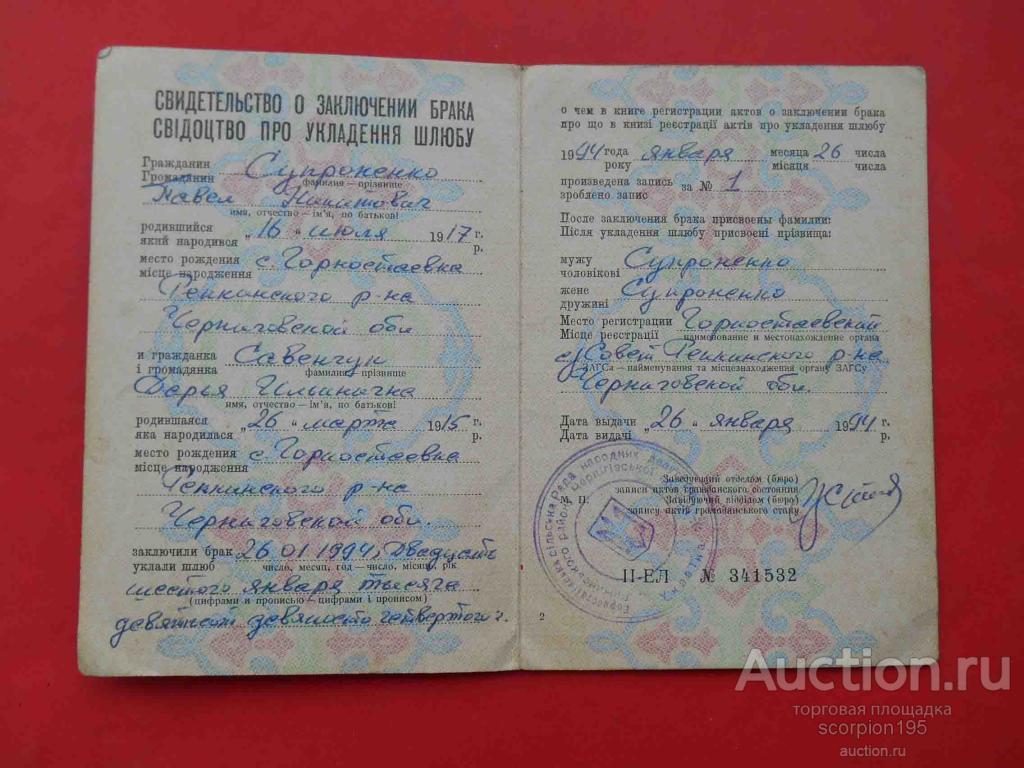 СВИДЕТЕЛЬСТВО О ЗАКЛЮЧЕНИИ БРАКА
СВІДОЦТВО ПРО УКЛАДЕННЯ ШЛЮБУ
Гражданин Супроненко
Громадянин фамилия — прізвище
Павел Никитович
имя, отчество — ім'я, по батькові
родившийся „16“ июля 1917 г.
який народився р.
место рождения с. Горностаевка
місце народження
Репкинского р-на
Черниговской обл
и гражданка Савенчук
і громадянка фамилия — прізвище
Дарья Ильинична
имя, отчество — ім'я, по батькові
родившаяся „26“ марта 1915 г.
яка народилася р.
место рождения с. Горностаевка
місце народження
Репкинского р-на
Черниговской обл.
заключили брак 26.01.1994, Двадцать
уклали шлюб число, месяц, год — число, місяць, рік
шестого января тысяча
(цифрами и прописью — цифрами і прописом)
девятьсот девяносто четвертого г.
о чем в книге регистрации актов о заключении брака
про що в книзі реєстрації актів про укладення шлюбу
1994 года января месяца 26 числа
року місяця числа
произведена запись за № 1
зроблено запис
После заключения брака присвоены фамилии:
Після укладення шлюбу присвоєні прізвища:
мужу Супроненко
чоловікові
жене Супроненко
дружині
Место регистрации Горностаевский
Місце реєстрації наименование и местонахождение органа
с/Совет Репкинского р-на
ЗАГСа — найменування та місцезнаходження органу ЗАГСу
Черниговской обл.
Дата выдачи „26“ января 1994 г.
Дата видачі р.
Заведующий отделом (бюро)
записи актов гражданского состояния
М. П. Завідуючий відділом (бюро)
запису актів громадянського стану
II-ЕЛ № 341532
2
сільська Рада народних
Auction.ru
торговая площадка
scorpion195
auction.ru